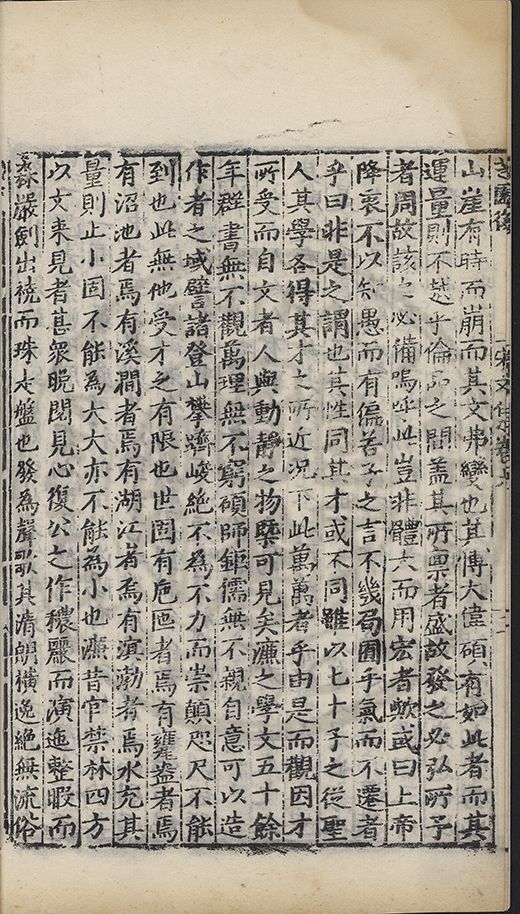 山崖有時而崩而其文弗變也其博大偉碩有如此者而其
運量則不越乎倫品之間蓋其所稟者盛故發之必弘所予
者周故該之必備嗚呼此豈非體大而用宏者歟或曰上帝
降衷不以知愚而有偏若子之言不幾局囿乎氣而不遷者
乎曰非是之謂也其性同其才或不同雖以七十子之從聖
人其學各得其才之所近况下此萬萬者乎由是而觀因才
所受而自文者人與動靜之物槩可見矣濂之學文五十餘
年群書無不觀萬理無不窮碩師鉅儒無不親自意可以造
作者之域譬諸登山攀躋峻絕不為不力而崇顛咫尺不能
到也此無他受才之有限也世固有巵匜者焉有甕盎者焉
有沼池者焉有溪澗者焉有湖江者焉有溟渤者焉水充其
量則止小固不能為大大亦不能為小也濂昔官禁林四方
以文来見者甚衆晚閱見心復公之作穠麗而演迤整暇而
森嚴劍出襓而珠走盤也發為聲歌其清朗橫逸絕無流俗